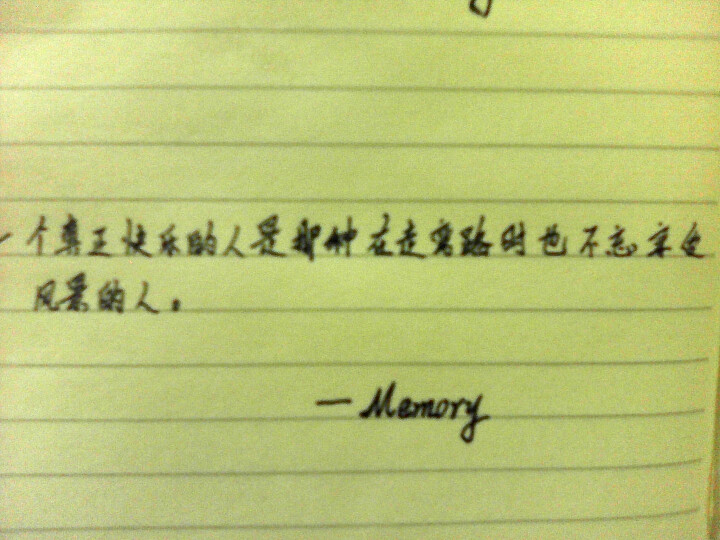 一个真正快乐的人是那种在走弯路时也不忘享受
风景的人。
—Memory